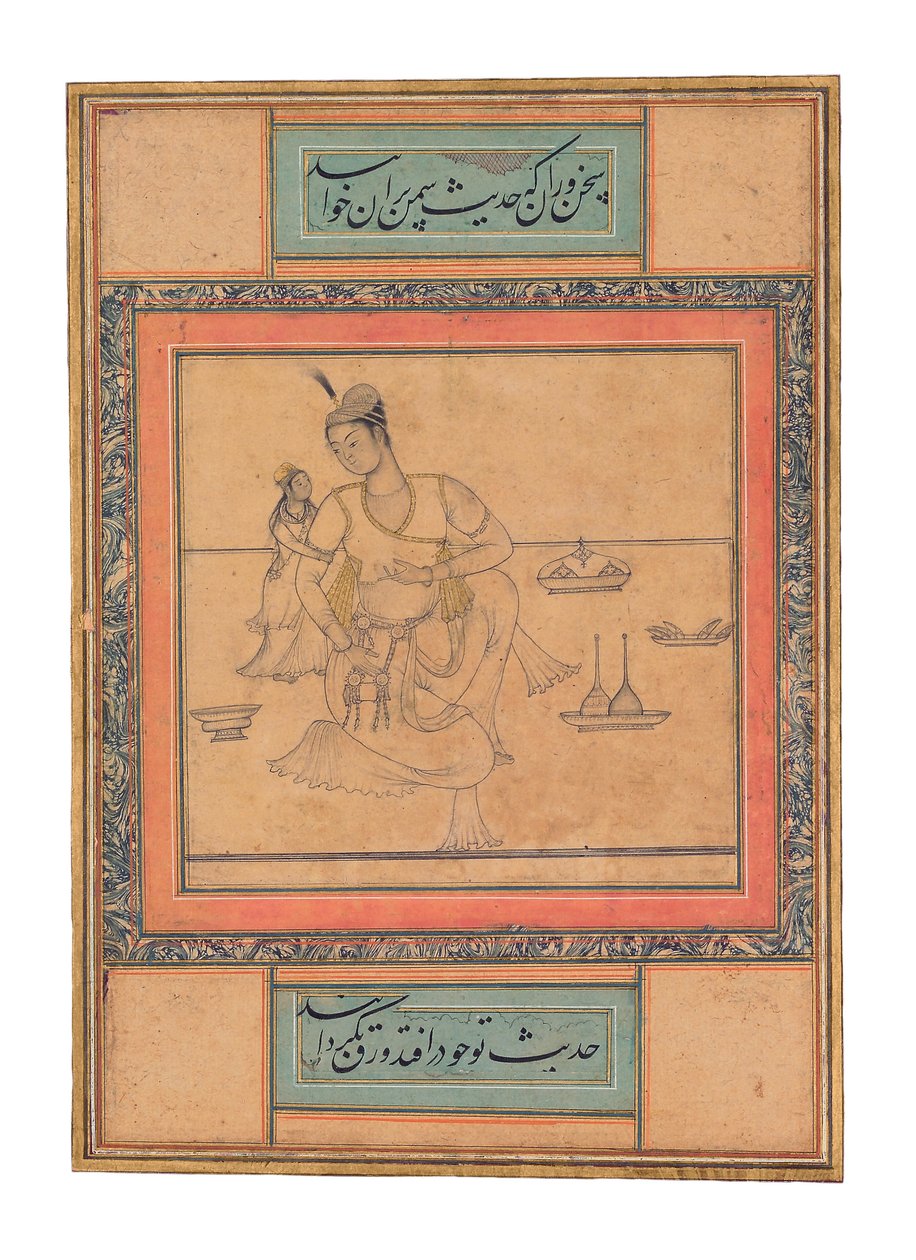 سخن وران که حدیث سمن بران خوانند
حدیث تو چو در افتد ورق بگردانند